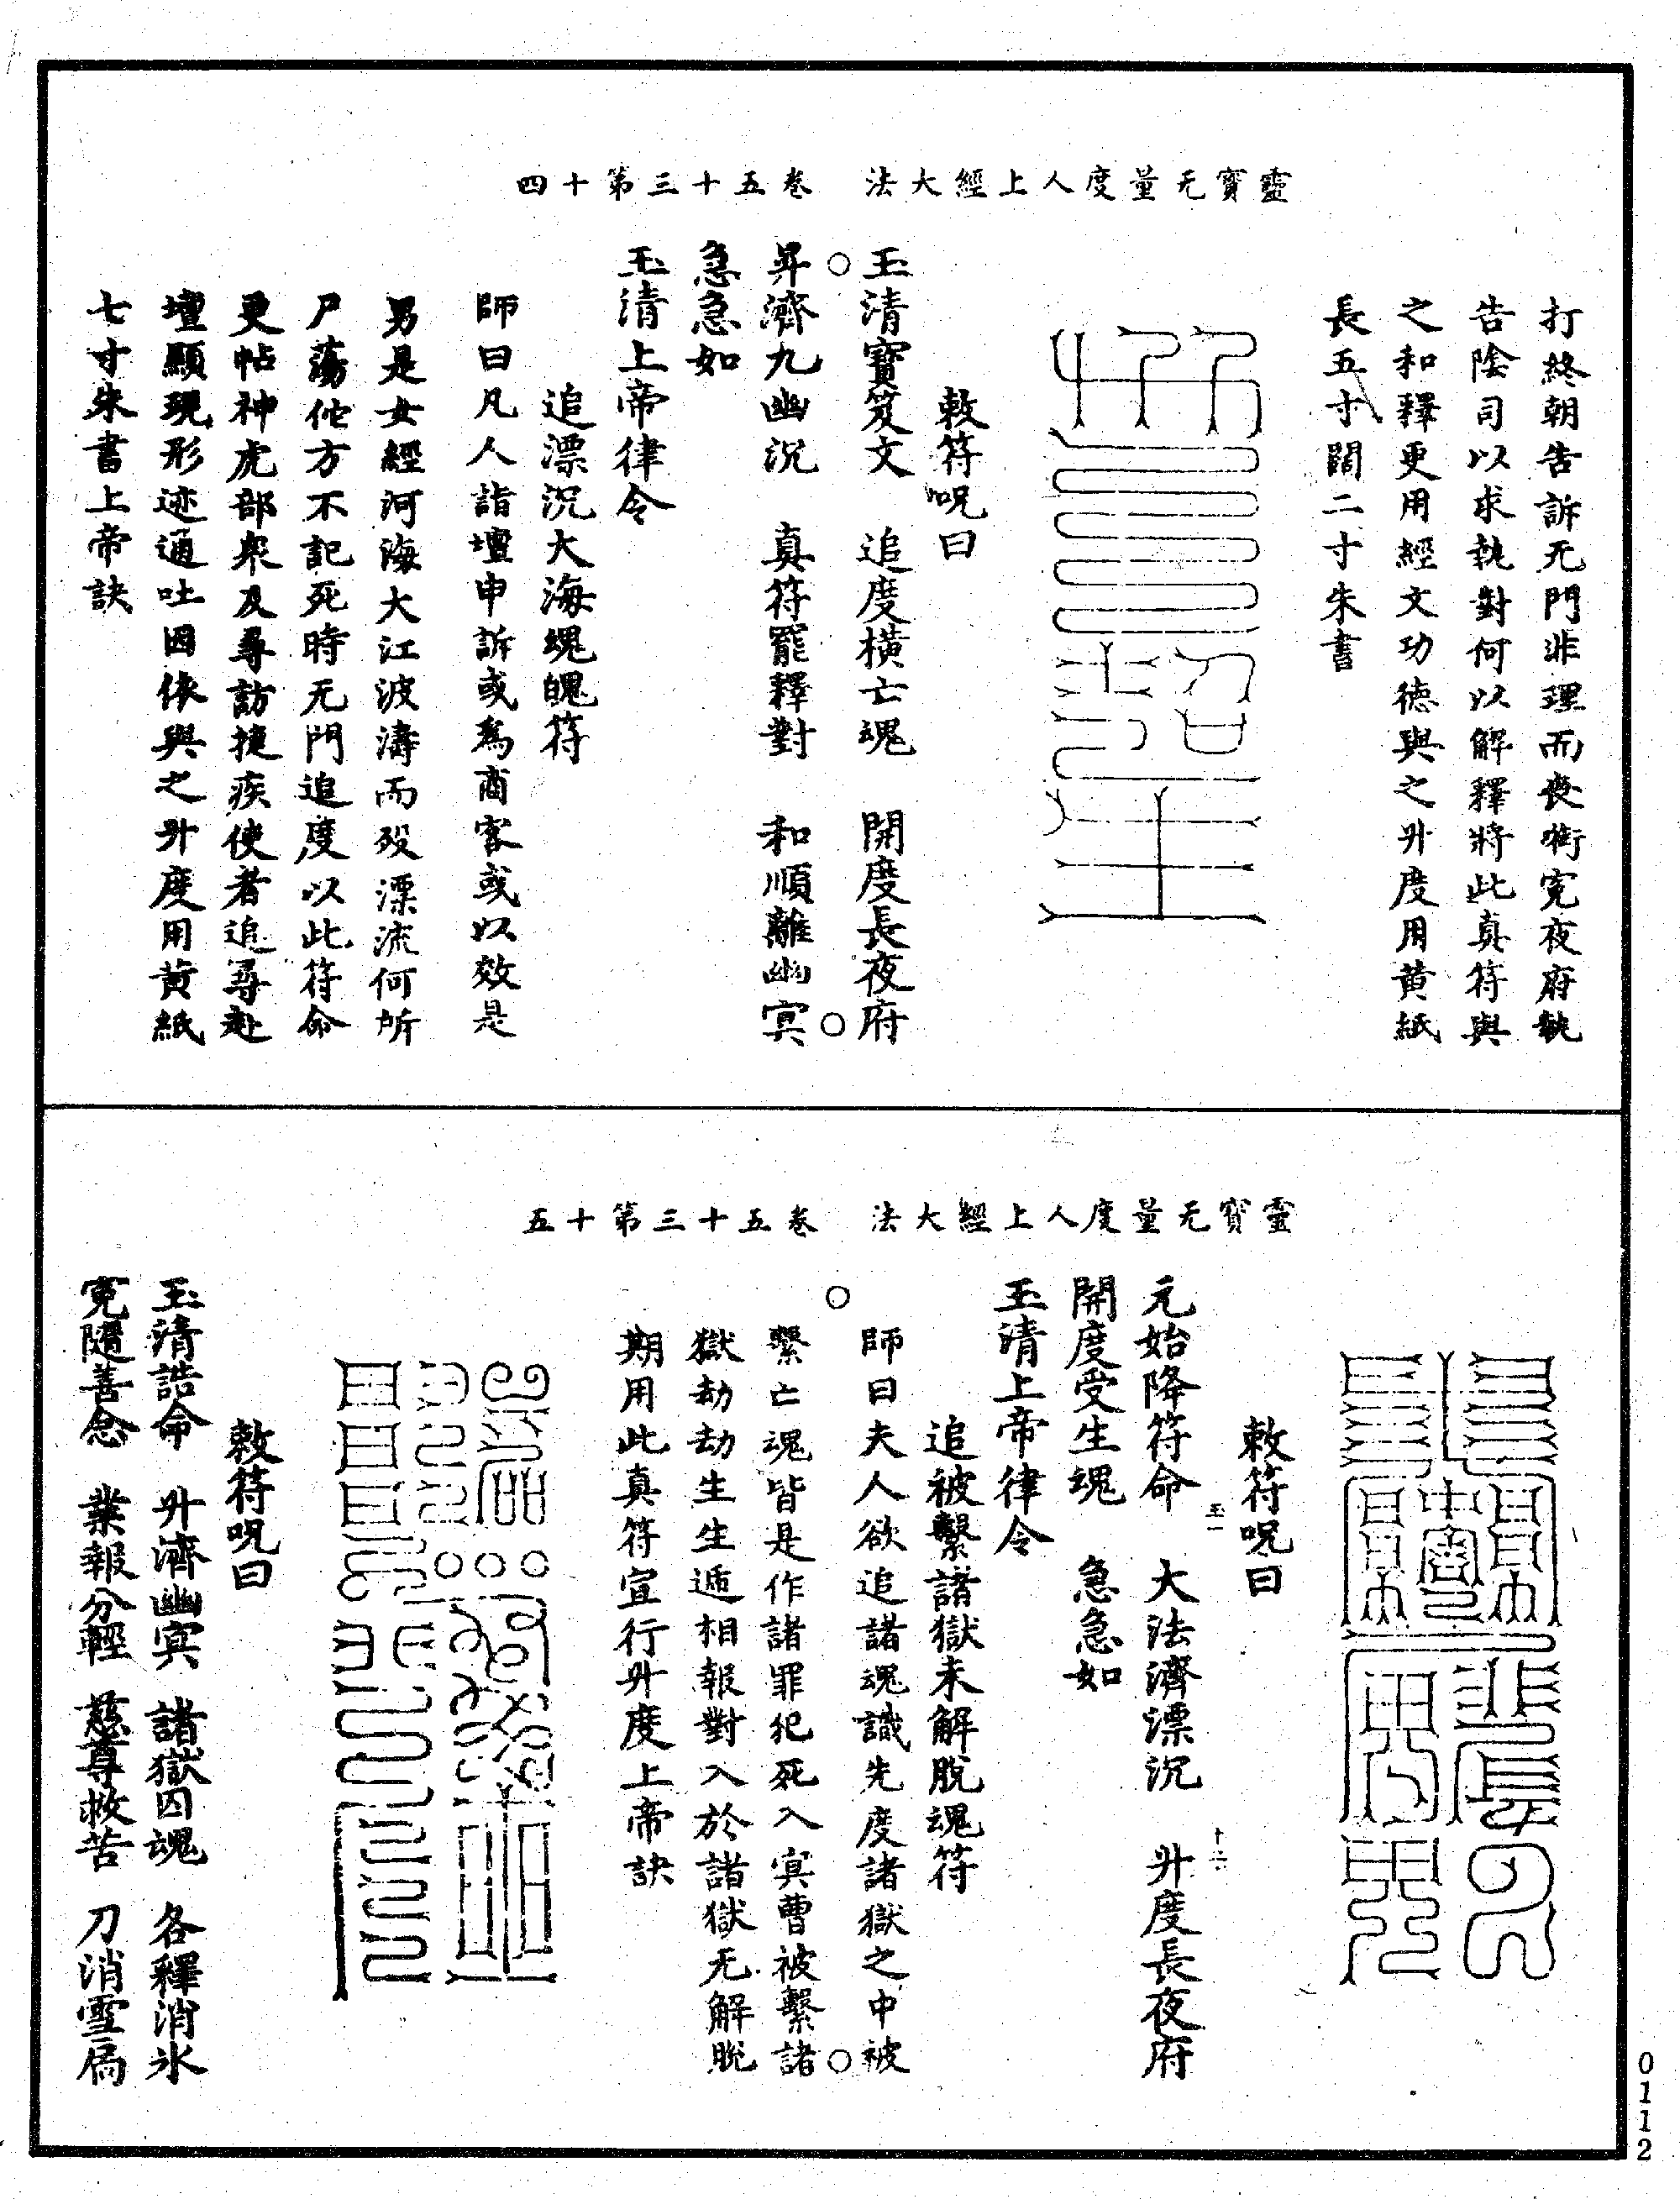 靈寶无量度人上經大法 卷五十三第十四
打終朝告訴无門非理而喪銜寃夜府執
告陰司以求執對何以解釋將此真符與
之和釋更用經文功德與之升度用黄紙
長五寸闊二寸朱書
敕符呪曰
玉清寶笈文 追度橫亡魂 開度長夜府
昇濟九幽沉 真符罷釋對 和順離幽冥
急急如
玉清上帝律令
追漂沉大海魂魄符
師曰凡人詣壇申訴或爲商客或以效是
男是女經河海大江波濤而殁漂流何所
尸蕩佗方不記死時无門追度以此符命
更帖神虎部衆及尋訪捷疾使者追尋赴
壇顯現形迹通吐因依與之升度用黄紙
七寸朱書上帝訣
靈寶无量度人上經大法 卷五十三第十五
敕符呪曰
元始降符命 大法濟漂沉 升度長夜府
開度受生魂 急急如
玉清上帝律令
追被繫諸獄未解脫魂符
師曰夫人欲追諸魂識先度諸獄之中被
繫亡魂皆是作諸罪犯死入冥曹被繫諸
獄劫劫生生遞相報對入於諸獄无解脫
期用此真符宣行升度上帝訣
敕符呪曰
玉清誥命 升濟幽冥 諸獄囚魂 各釋消氷
寃隨善念 業報分輕 慈尊救苦 刀消雪扃
0112